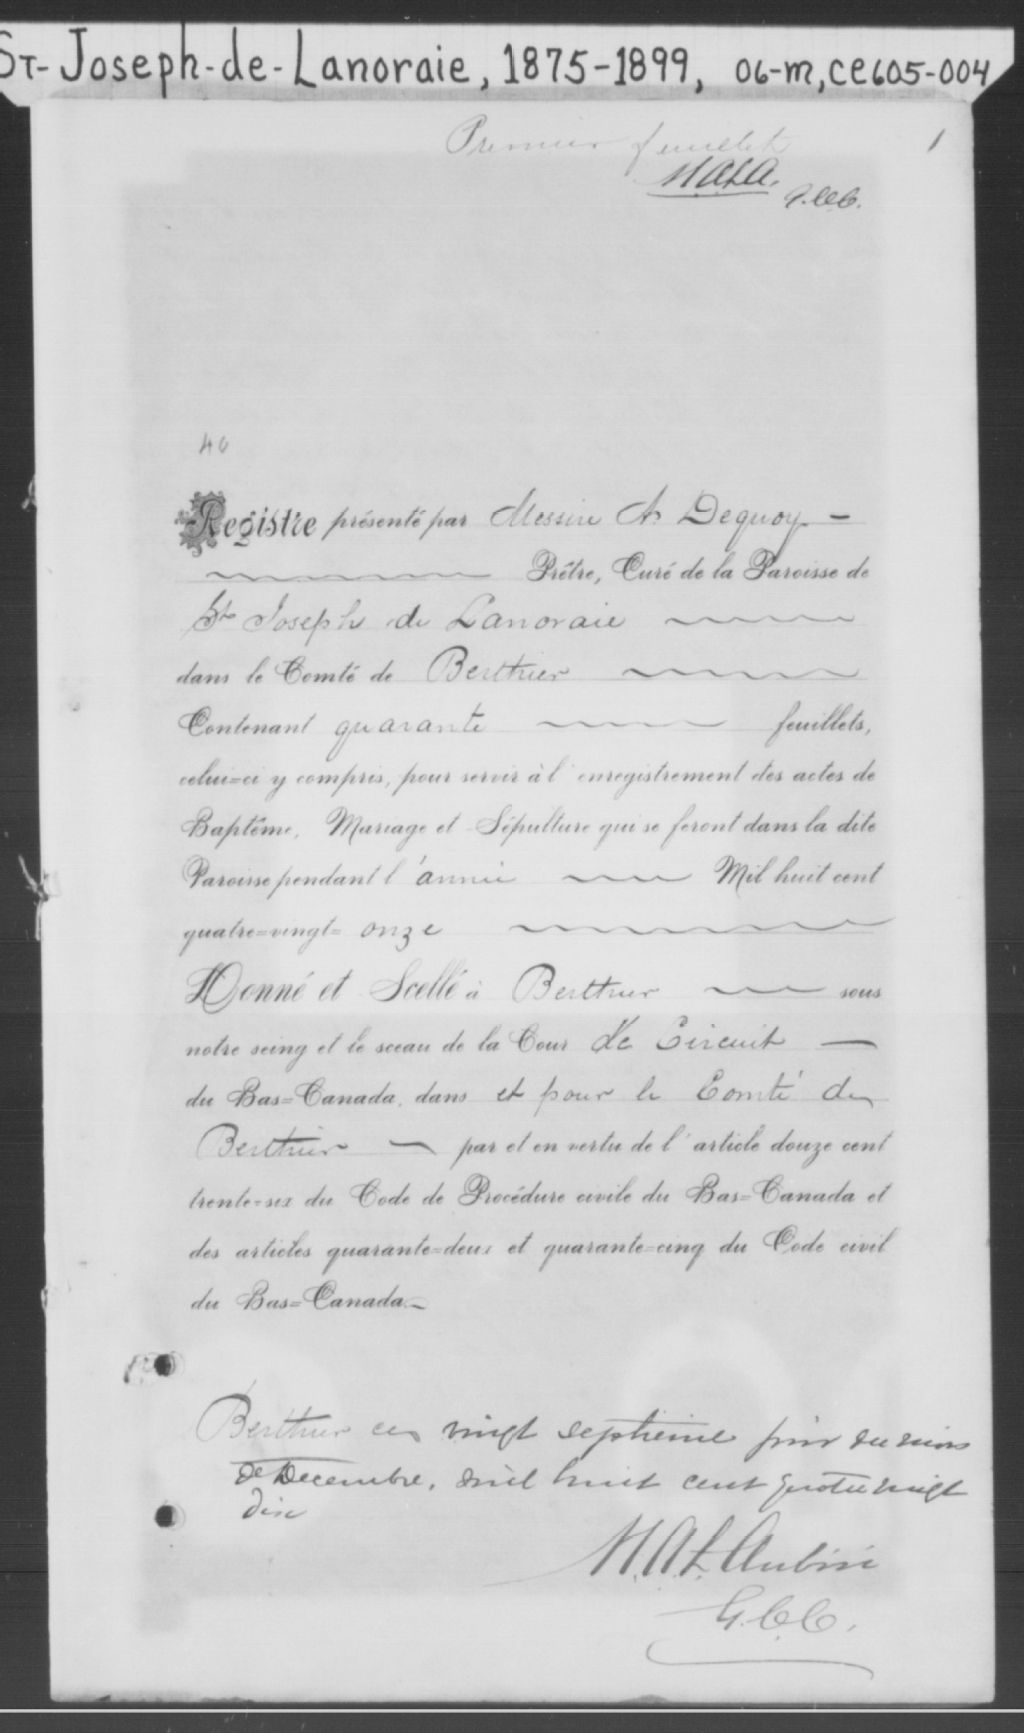 St-Joseph-de-Lanoraie, 1875-1899, 06-M, CE605-004
1
Premier feuillet
H.A.L.A.
G.C.C.
40
Registre présenté par Messire A. Dequoy —
Prêtre, Curé de la Paroisse de
St Joseph de Lanoraie
dans le Comté de Berthier
Contenant quarante feuillets,
celui=ci y compris, pour servir à l'enregistrement des actes de
Baptême, Mariage et Sépulture qui se feront dans la dite
Paroisse pendant l'année Mil huit cent
quatre=vingt= onze
Donné et Scellé à Berthier sous
notre seing et le sceau de la Cour de Circuit —
du Bas=Canada, dans et pour le Comté de
Berthier — par et en vertu de l'article douze cent
trente=six du Code de Procédure civile du Bas=Canada et
des articles quarante=deux et quarante=cinq du Code civil
du Bas=Canada.—
Berthier ce vingt septième jour du mois
de Décembre, mil huit cent quatre vingt
dix
H.A.L. Aubin
G.C.C.